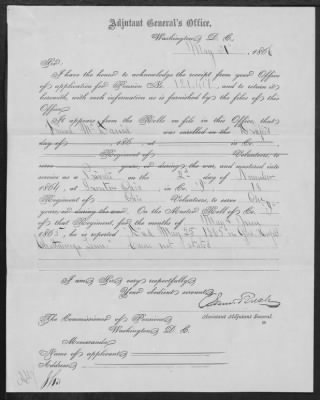 Adjutant General's Office,
Washington, D. C.
May 31, 186
Sir:
I have the honor to acknowledge the receipt from your Office
of application for Pension No. and to return it
herewith, with such information as is furnished by the files of this
Office.
It appears from the Rolls on file in this Office, that
was enrolled on the
day of 186 , at , in Co.
Regiment of Volunteers, to
serve years, or during the war, and mustered into
service as a Private on the 2d day of November
1864, at Ohio, in Co.
Regiment of Ohio Volunteers, to serve One
years, or during the war. On the Muster Roll of Co.
of that Regiment, for the months of May & June
1865, he is reported Died May 25 1865 in Hospt
Chattanooga Tenn. Cause not stated
I am, Sir, very respectfully,
Your obedient servant,
Assistant Adjutant General.
The Commissioner of Pensions,
Washington, D. C.
Memoranda:
Name of applicant
Address